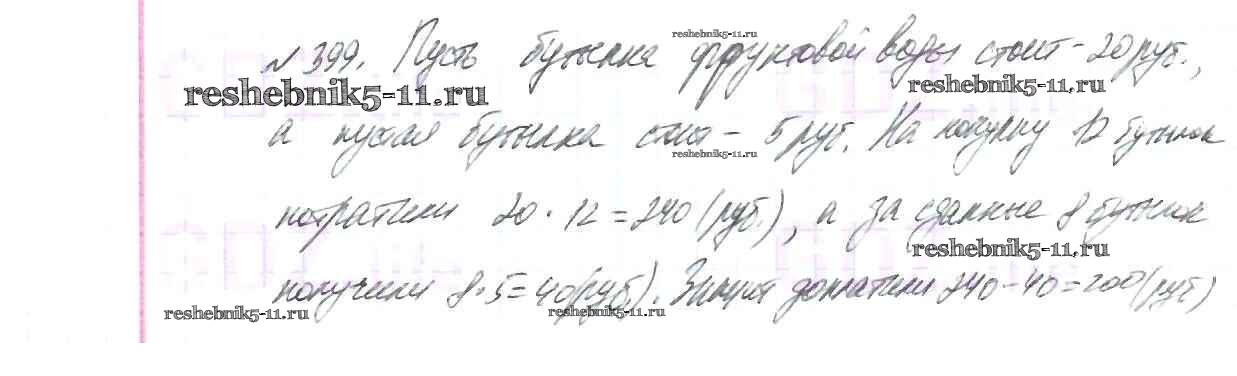 reshebnik5-11.ru
№399. Пусть бутылка фруктовой воды стоит - 20 руб.,
reshebnik5-11.ru
reshebnik5-11.ru
а пустая бутылка стоит - 5 руб. На покупку 12 бутылок
reshebnik5-11.ru
потратили 20 · 12 = 240 (руб.), а за сданные 8 бутылок
reshebnik5-11.ru
получили 8 · 5 = 40 (руб.). Значит доплатили 240 - 40 = 200 (руб)
reshebnik5-11.ru
reshebnik5-11.ru